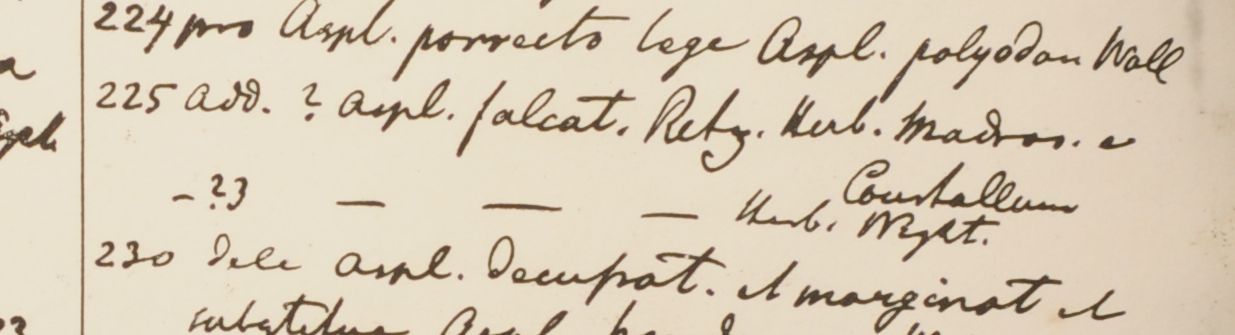 224 pro Aspl. porrecto lege Aspl. polyodon Wall
225 add. ? Aspl. falcat. Retz. Herb. Madras. e
Courtallum
– ? 3 — — — Herb. Wight.
230 dele Aspl. decussat. et marginat et
substitue Aspl.